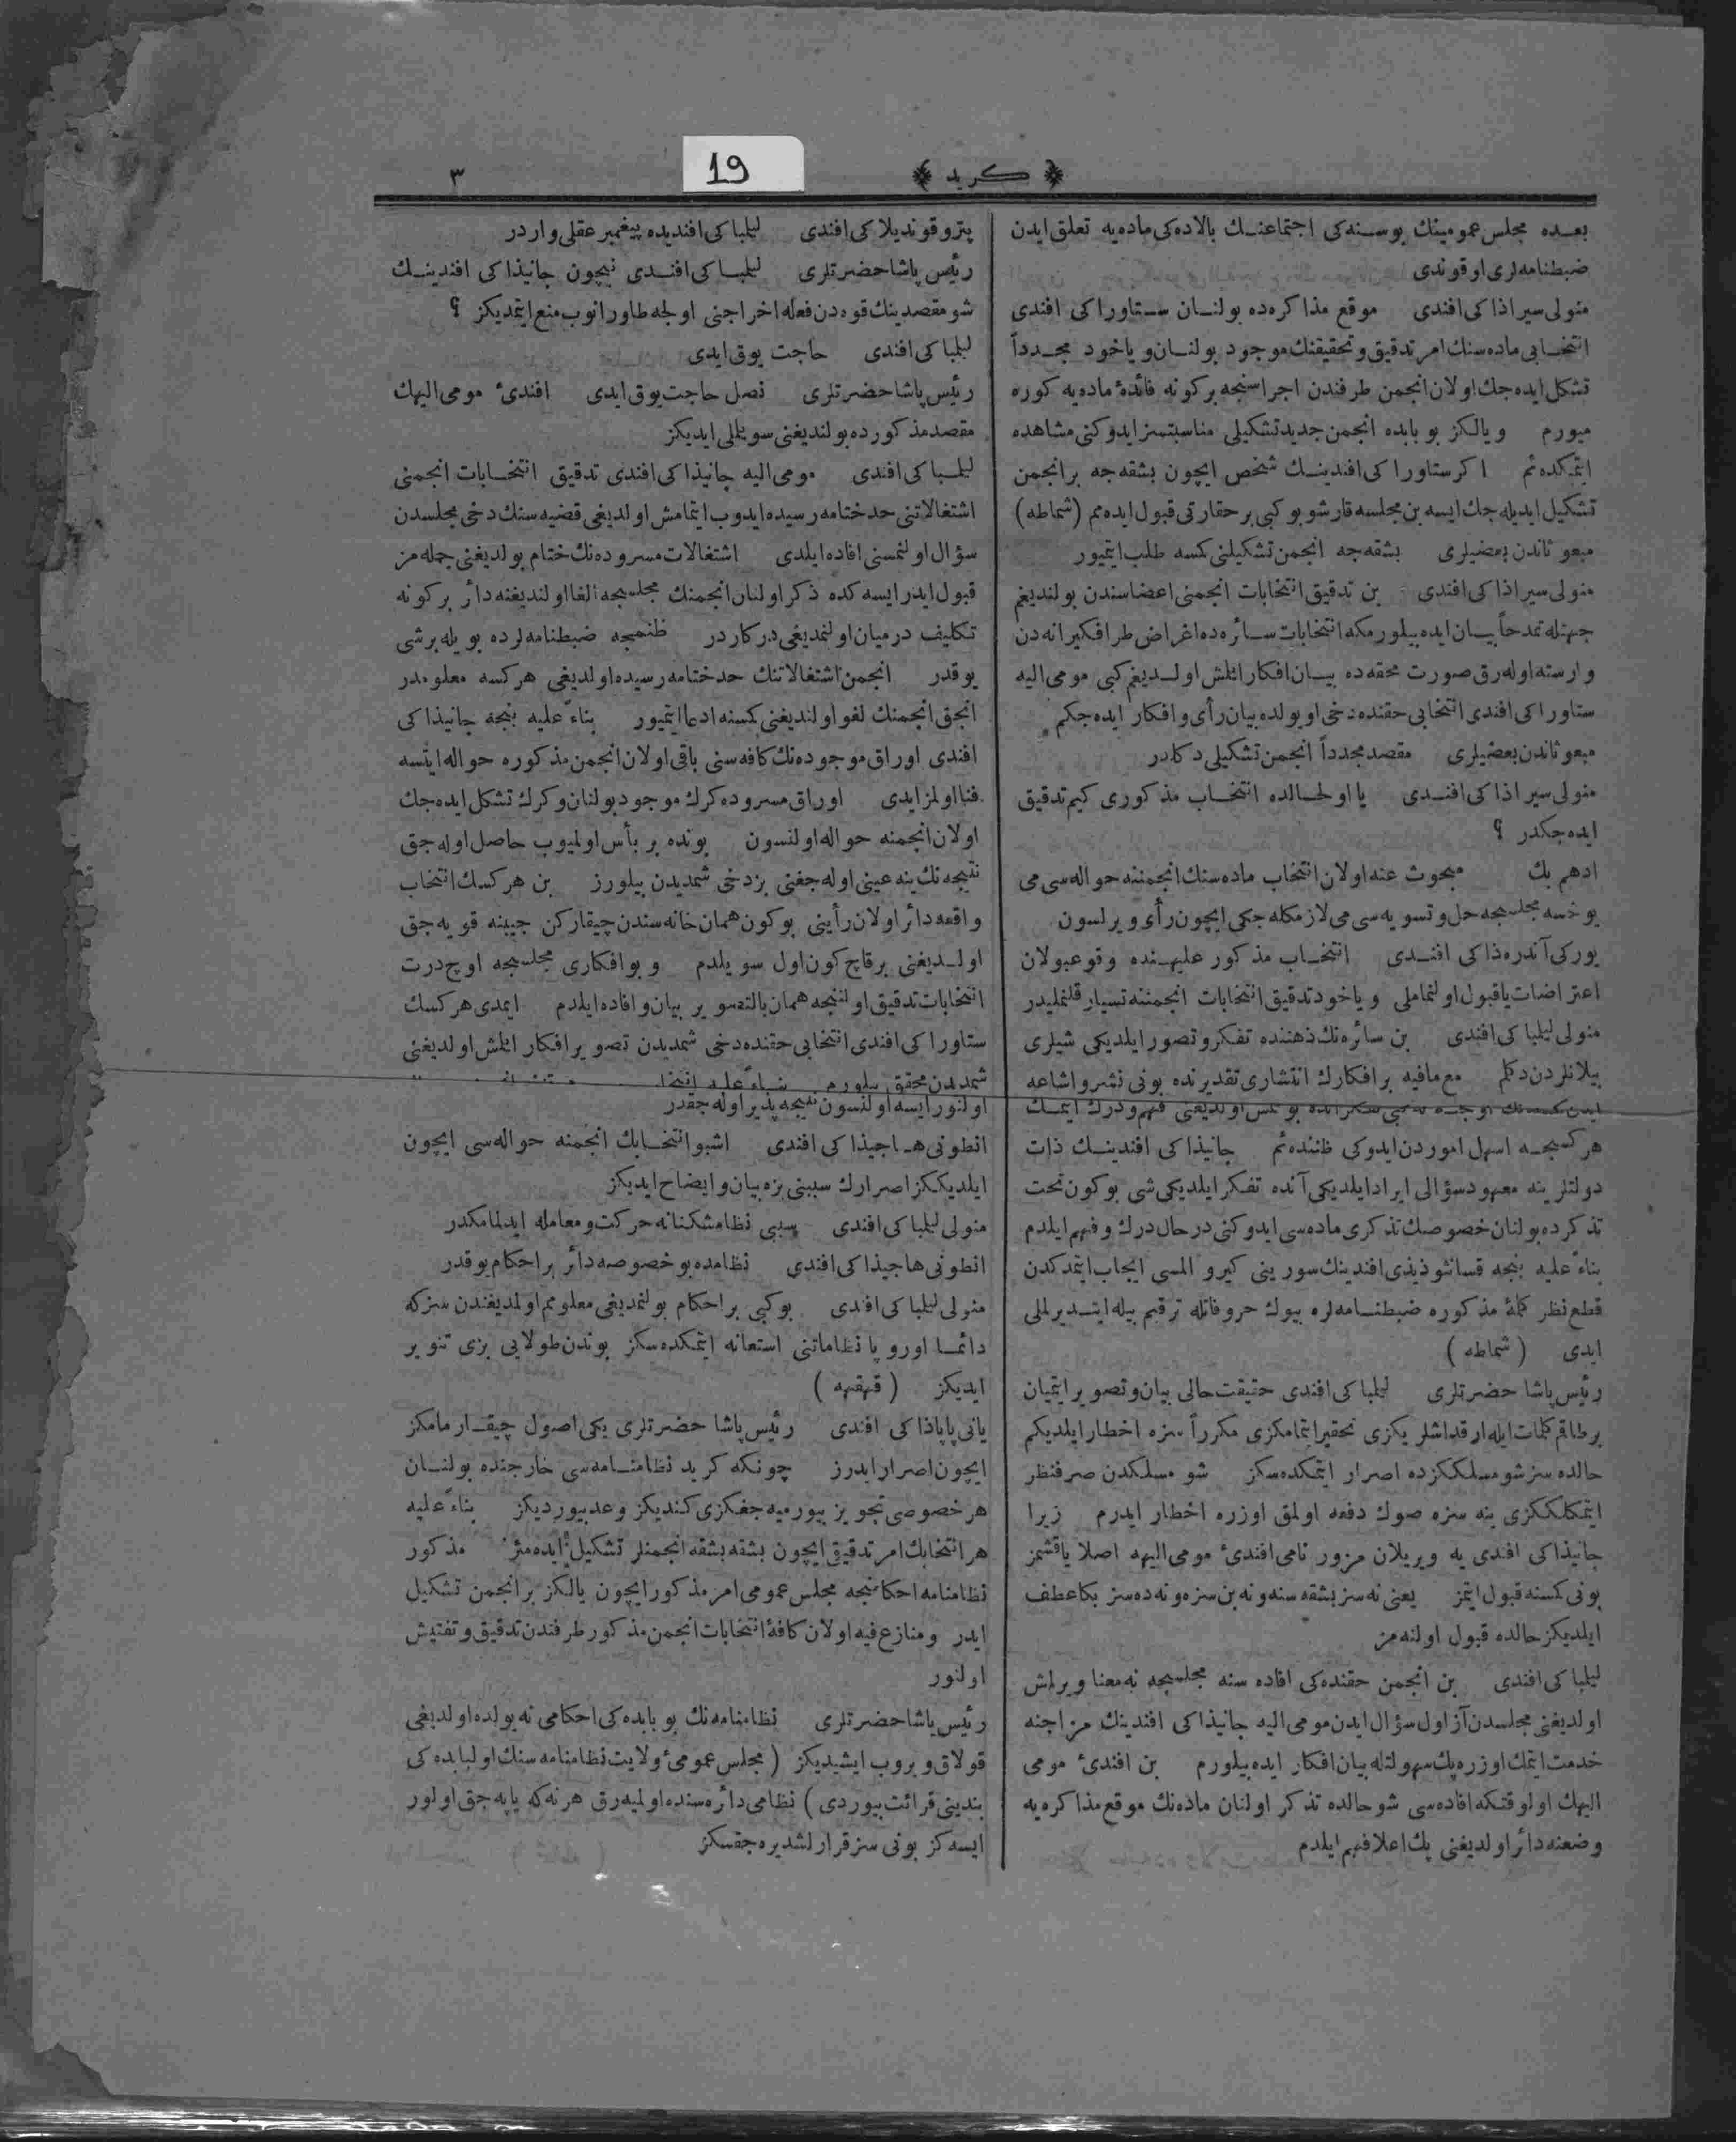 ﴿ كريد ﴾
19
٣
بعده مجلس عمومينك بو سنه‌كى اجتماعنك بالاده‌كى ماده‌يه تعلق ايدن
ضبطنامه‌لرى اوقوندى
منولى سيراذاكى افندى موقع مذاكره‌ده بولنان ستاوراكى افندى
انتخابى ماده‌سنك امر تدقيق و تحقيقنك موجود بولنان و ياخود مجدداً
تشكل ايده‌جك اولان انجمن طرفندن اجراسنجه بر كونه فائده‌ٔ ماديه كوره
ميورم و يالكز بو بابده انجمن جديد تشكيلى مناسبتسز ايدوكنى مشاهده
ايتمكده‌ثم اكر ستاوراكى افندينك شخص ايچون بشقه‌جه بر انجمن
تشكيل ايديله‌جك ايسه بن مجلسه قارشو بو كبى بر حقارتى قبول ايده‌مم (شماطه)
مبعوثاندن بعضيلرى بشقه‌جه انجمن تشكيلنى كسه طلب ايتميور
منولى سيراذاكى افندى بن تدقيق انتخابات انجمنى اعضاسندن بولنديغم
جهتله تمدحاً بيان ايده بيلورمكه انتخابات سائره‌ده اغراض طرافكيرانه‌دن
وارسته اوله‌رق صورت محقه‌ده بيان افكار ائلمش اولديغم كبى مومى اليه
ستاوراكى افندى انتخابى حقنده دخى او يولده بيان رأى و افكار ايده‌جكم
مبعوثاندن بعضيلرى مقصد مجدداً انجمن تشكيلى دكلدر
منولى سيراذاكى افندى يا اولحالده انتخاب مذكورى كيم تدقيق
ايده‌جكدر ؟
ادهم بك مبحوث عنه اولان انتخاب ماده‌سنك انجمننه حواله‌سى مى
يوخسه مجلسجه حل و تسويه‌سى مى لازمكله‌جكى ايچون رأى ويرلسون
يوركى آندره‌ذاكى افندى انتخاب مذكور عليهنده وقوعبولان
اعتراضات يا قبول اولنماملى و ياخود تدقيق انتخابات انجمننه تسيار قلنمليدر
منولى ليلباكى افندى بن سائره‌نك ذهننده تفكر و تصور ايلديكى شيلرى
بيلانلردن دكلم مع مافيه بر افكارك انتشارى تقديرنده بونى نشر و اشاعه
هر كسجه اسهل اموردن ايدوكى ظننده‌ثم جانيذاكى افندينك ذات
دولتلرينه معهود سؤالى ايراد ايلديكى آنده تفكر ايلديكى شى بوكون تحت
تذكرده بولنان خصوصك تذكرى ماده‌سى ايدوكنى درحال درك و فهم ايلدم
بناءً عليه بنجه قسانثوذيذى افندينك سورينى كيرو المسى ايجاب ايتمدكدن
قطع نظر كلمۀ مذكوره ضبطنامه‌لره بيوك حروفاتله ترقيم بيله ايتديرلملى
ايدى (شماطه)
رئيس پاشا حضرتلرى ليلباكى افندى حقيقت حالى بيان و تصوير ايتميان
برطاقم كلمات ايله ارقداشلريكزى تحقير ايتمامكزى مكرراً سزه اخطار ايلديكم
حالده سز شو مسلككزده اصرار ايتمكده‌سكز شو مسلكدن صرفنظر
ايتمكلككزى ينه سزه صوك دفعه اولمق اوزره اخطار ايدرم زيرا
جانيذاكى افندى يه ويريلان مزور نامى افندىٔ مومى اليهه اصلا ياقشمز
بونى كمسنه قبول ايتمز يعنى نه سز بشقه‌سنه و نه بن سزه و نه ده سز بكا عطف
ايلديكز حالده قبول اولنه‌مز
ليلباكى افندى بن انجمن حقنده‌كى افاده‌سنه مجلسجه نه معنا ويرلمش
اولديغنى مجلسدن آز اول سؤال ايدن مومى اليه جانيذاكى افندينك مزاجنه
خدمت ايتمك اوزره پك سهولتله بيان افكار ايده بيلورم بن افندىٔ مومى
اليهك اولوقتكه افاده‌سى شو حالده تذكر اولنان ماده‌نك موقع مذاكره‌يه
وضعنه دائر اولديغنى پك اعلا فهم ايلدم
پترو قونديلاكى افندى ليلباكى افنديده پيغمبر عقلى واردر
رئيس پاشا حضرتلرى ليلباكى افندى نيچون جانيذاكى افندينك
شو مقصدينك قوه‌دن فعله اخراجنى اولجه طاورانوب منع ايتمديكز ؟
ليلباكى افندى حاجت يوق ايدى
رئيس پاشا حضرتلرى نصل حاجت يوق ايدى افندىٔ مومى اليهك
مقصد مذكورده بولنديغنى سويلملى ايديكز
ليلباكى افندى مومى اليه جانيذاكى افندى تدقيق انتخابات انجمنى
اشتغالاتنى حد ختامه رسيده ايدوب ايتمامش اولديغى قضيه‌سنك دخى مجلسدن
سؤال اولنمسنى افاده ايلدى اشتغالات مسروده‌نك ختام بولديغنى جمله‌مز
قبول ايدر ايسه‌كده ذكر اولنان انجمنك مجلسجه الغا اولنديغنه دائر بر كونه
تكليف درميان اولنمديغى دركاردر ظنمجه ضبطنامه‌لرده بويله برشى
يوقدر انجمن اشتغالاتنك حد ختامه رسيده اولديغى هركسه معلومدر
انجق انجمنك لغو اولنديغنى كمسنه ادعا ايتميور بناءً عليه بنجه جانيذاكى
افندى اوراق موجوده‌نك كافه‌سنى باقى اولان انجمن مذكوره حواله ايتسه
فنا اولمز ايدى اوراق مسروده كرك موجود بولنان و كرك تشكل ايده‌جك
اولان انجمنه حواله اولنسون بونده بر بأس اولميوب حاصل اوله‌جق
نتيجه‌نك ينه عينى اوله‌جغنى بز دخى شمديدن بيلورز بن هر كسك انتخاب
واقعه دائر اولان رأينى بوكون همان خانه‌سندن چيقاركن جيبنه قويه‌جق
اولديغنى برقاچ كون اول سويلدم و بو افكارى مجلسجه اوچ درت
انتخابات تدقيق اولننجه همان بالتصوير بيان و افاده ايلدم ايمدى هركسك
ستاوراكى افندى انتخابى حقنده دخى شمديدن تصوير افكار ائلمش اولديغنى
شمديدن محقق بيلورم بناءً عليه
اولنور ايسه اولنسون نتيجه پذير اوله‌جقدر
انطونى هاجيذاكى افندى اشبو انتخابك انجمنه حواله‌سى ايچون
ايلديككز اصرارك سببنى بزه بيان و ايضاح ايديكز
منولى ليلباكى افندى سببى نظامشكنانه حركت و معامله ايدلمامكدر
انطونى هاجيذاكى افندى نظامده بو خصوصه دائر بر احكام يوقدر
منولى ليلباكى افندى بو كبى بر احكام بولنمديغى معلومم اولمديغندن سز كه
دائما اوروپا نظاماتنى استعانه ايتمكده‌سكز بوندن طولايى بزى تنوير
ايديكز (قهقهه)
يانى پاپاذاكى افندى رئيس پاشا حضرتلرى يكى اصول چيقارمامكز
ايچون اصرار ايدرز چونكه كريد نظامنامه‌سى خارجنده بولنان
هر خصوصى تجويز بيورميه‌جغكزى كنديكز وعد بيورديكز بناءً عليه
هر انتخابك امر تدقيقى ايچون بشقه بشقه انجمنلر تشكيل ايده‌مثز مذكور
نظامنامه احكامنجه مجلس عمومى امر مذكور ايچون يالكز بر انجمن تشكيل
ايدر و منازع فيه اولان كافۀ انتخابات انجمن مذكور طرفندن تدقيق و تفتيش
اولنور
رئيس پاشا حضرتلرى نظامنامه‌نك بو بابده‌كى احكامى نه يولده اولديغى
قولاق ويروب ايشيديكز (مجلس عمومىٔ ولايت نظامنامه‌سنك اولبابده‌كى
بندينى قرائت بيوردى) نظامى دائره‌سنده اولميه‌رق هر نه كه ياپه‌جق اولور
ايسه‌كز بونى سز قرارلشديره‌جقسكز